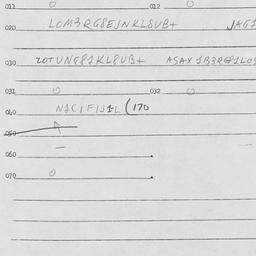 011 0 012 0
020 LOM3RG8EJNKL8UB+ JAG1
030 20TUNG81KL8UB+ ASAX1B3RG81LO
031 0 032 0
040 N1CIFIJ1L (170
050
060
070 0